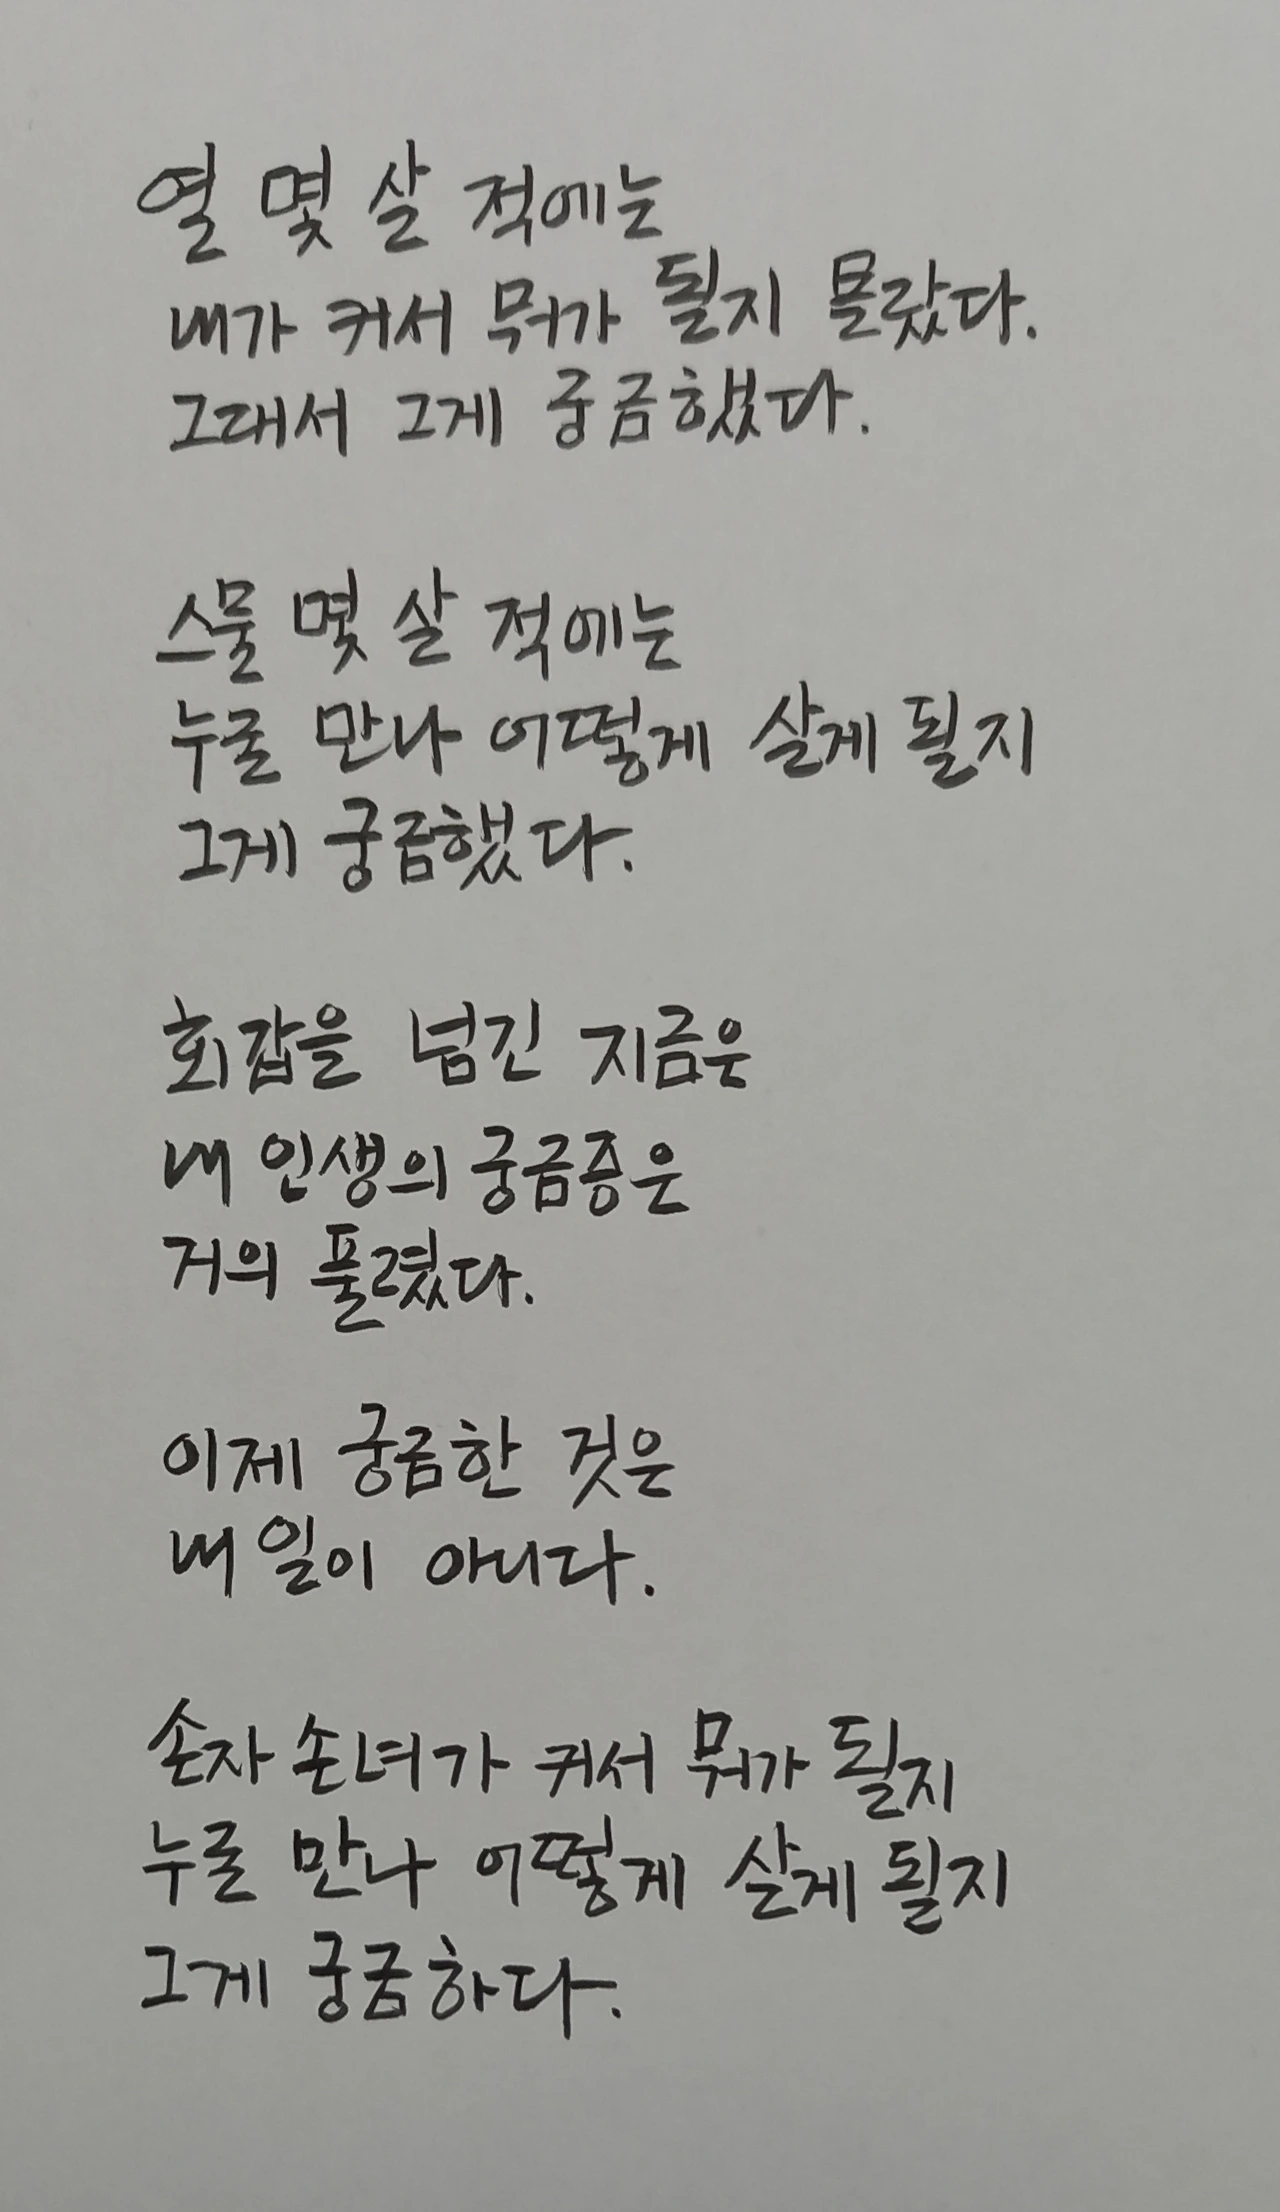 열 몇 살 적에는
내가 커서 뭐가 될지 몰랐다.
그래서 그게 궁금했다.
스물 몇 살 적에는
누굴 만나 어떻게 살게 될지
그게 궁금했다.
회갑을 넘긴 지금은
내 인생의 궁금증은
거의 풀렸다.
이제 궁금한 것은
내 일이 아니다.
손자 손녀가 커서 뭐가 될지
누굴 만나 어떻게 살게 될지
그게 궁금하다.